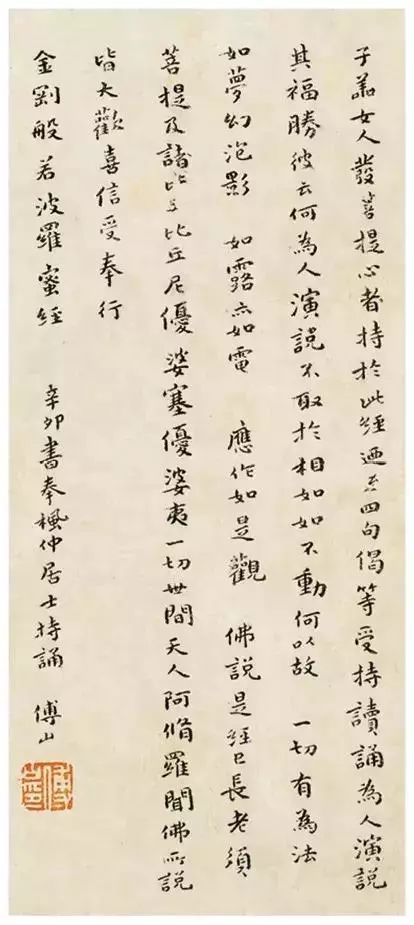 子善女人發菩提心者持於此經迺至四句偈等受持讀誦為人演説
其福勝彼云何為人演説不取於相如如不動何以故 一切有為法
如夢幻泡影 如露亦如電 應作如是觀 佛説是經已長老須
菩提及諸比丘比丘尼優婆塞優婆夷一切世間天人阿脩羅聞佛所説
皆大歡喜信受奉行
金剛般若波羅蜜經 辛卯書奉楓仲居士持誦 傅山
傅山印